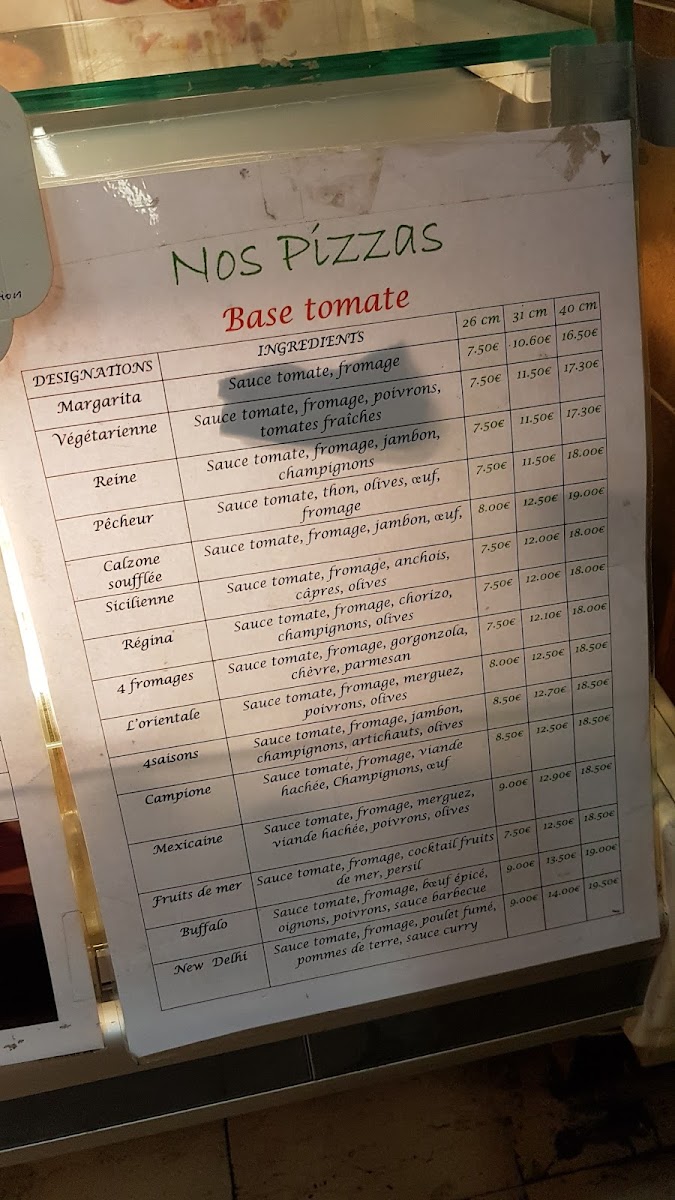 Nos Pizzas
Base tomate
DESIGNATIONS INGREDIENTS 26 cm 31 cm 40 cm
Margarita Sauce tomate, fromage 7.50€ 10.60€ 16.50€
Végétarienne Sauce tomate, fromage, poivrons, 7.50€ 11.50€ 17.30€
tomates fraîches
Reine Sauce tomate, fromage, jambon, 7.50€ 11.50€ 17.30€
champignons
Pêcheur Sauce tomate, thon, olives, œuf, 7.50€ 11.50€ 18.00€
fromage
Calzone Sauce tomate, fromage, jambon, œuf, 8.00€ 12.50€ 19.00€
soufflée
Sicilienne Sauce tomate, fromage, anchois, 7.50€ 12.00€ 18.00€
câpres, olives
Régina Sauce tomate, fromage, chorizo, 7.50€ 12.00€ 18.00€
champignons, olives
4 fromages Sauce tomate, fromage, gorgonzola, 7.50€ 12.10€ 18.00€
chèvre, parmesan
L'orientale Sauce tomate, fromage, merguez, 8.00€ 12.50€ 18.50€
poivrons, olives
4saisons Sauce tomate, fromage, jambon, 8.50€ 12.70€ 18.50€
champignons, artichauts, olives
Campione Sauce tomate, fromage, viande 8.50€ 12.50€ 18.50€
hachée, Champignons, œuf
Mexicaine Sauce tomate, fromage, merguez, 9.00€ 12.90€ 18.50€
viande hachée, poivrons, olives
Fruits de mer Sauce tomate, fromage, cocktail fruits 7.50€ 12.50€ 18.50€
de mer, persil
Buffalo Sauce tomate, fromage, bœuf épicé, 9.00€ 13.50€ 19.00€
oignons, poivrons, sauce barbecue
New Delhi Sauce tomate, fromage, poulet fumé, 9.00€ 14.00€ 19.50€
pommes de terre, sauce curry